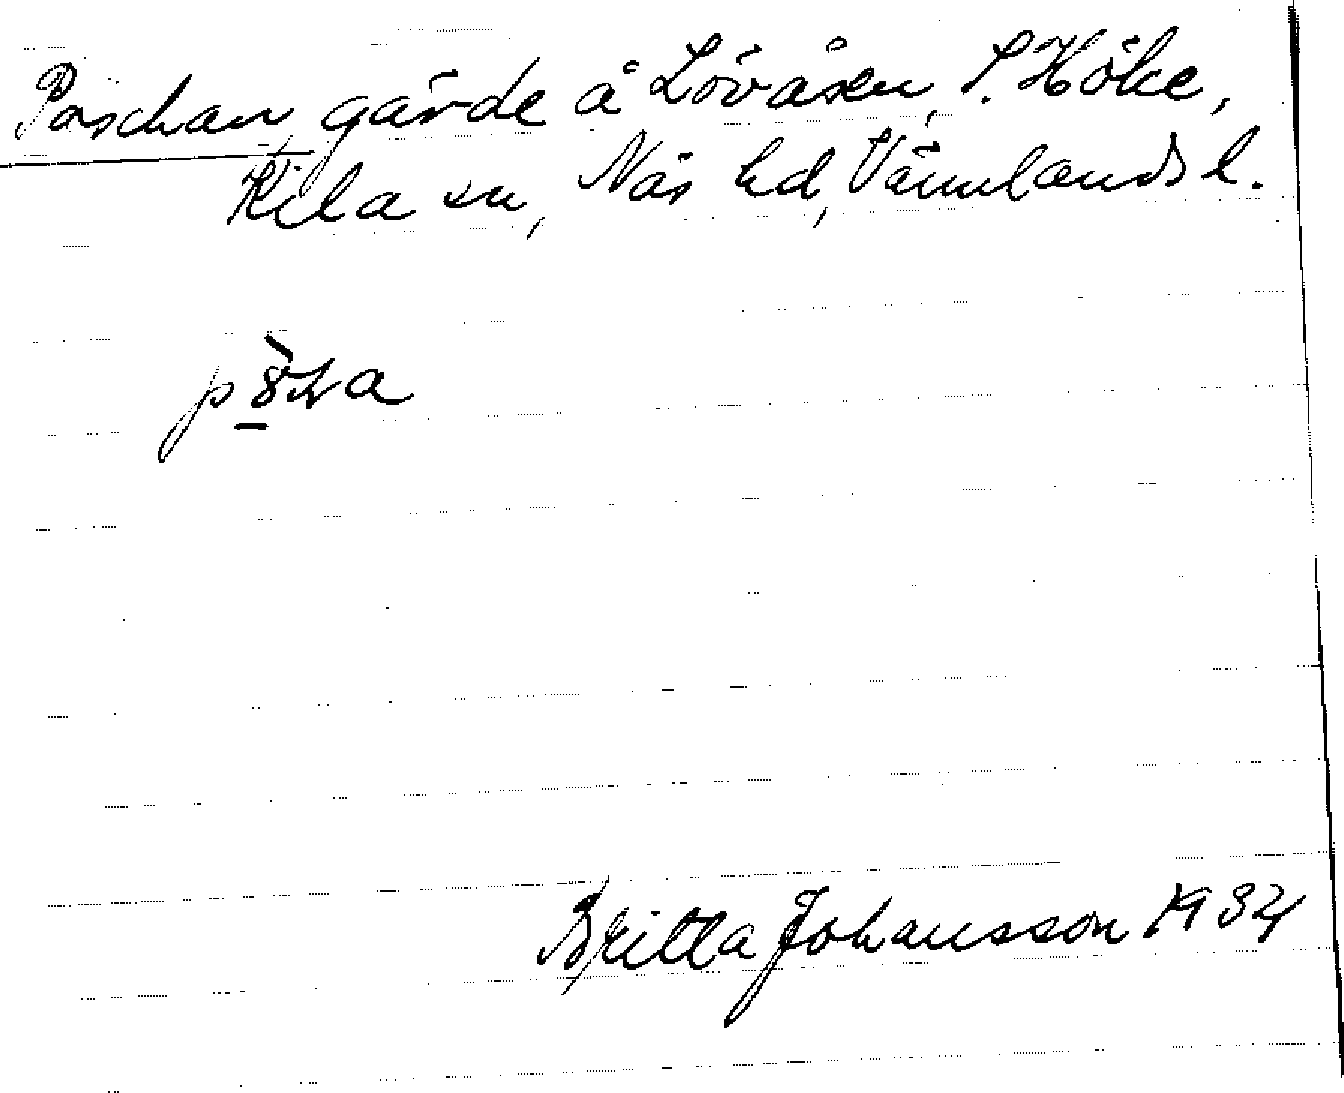 Påschan, gärde å Lövåsen, S. Höke,
Kila sn, Näs hd, Värmlands l.
Britta Johansson 1934